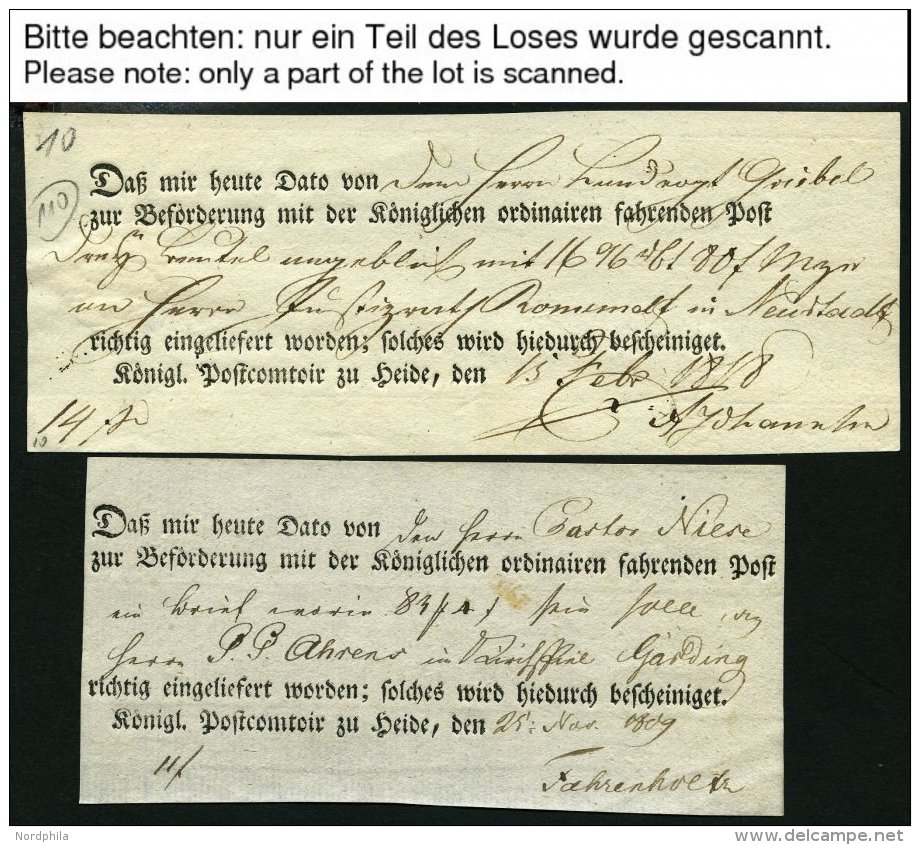 Bitte beachten: nur ein Teil des Loses wurde gescannt.
Please note: only a part of the lot is scanned.
10
110
Daß mir heute Dato von dem Herrn Landvogt Griebel
zur Beförderung mit der Königlichen ordinairen fahrenden Post
Drey Beutel angeblich mit 16
an Herrn Justizrath in Neustadt
richtig eingeliefert worden; solches wird hiedurch bescheiniget.
Königl. Postcomtoir zu Heide, den 15 Febr 1818
14
10
Daß mir heute Dato von den Herrn Pastor Niese
zur Beförderung mit der Königlichen ordinairen fahrenden Post
ein Brief worin 83 sein soll, an
Herrn P. P. Ahrens in Kirchspiel Garding
richtig eingeliefert worden; solches wird hiedurch bescheiniget.
Königl. Postcomtoir zu Heide, den 25: Nov. 1809
Fahrenholtz
Nordphila
delcampe.net